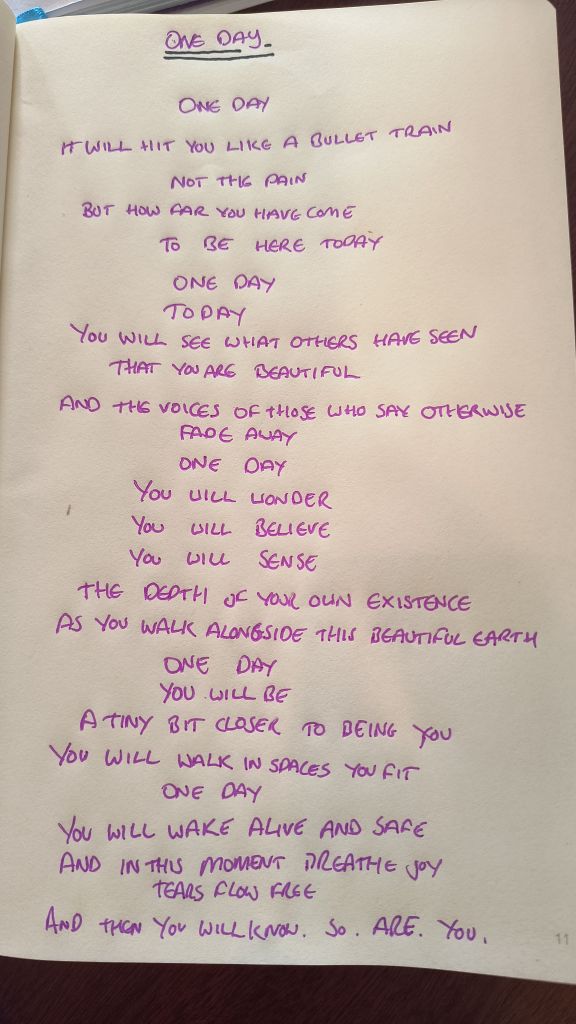 ONE DAY.
ONE DAY
IT WILL HIT YOU LIKE A BULLET TRAIN
NOT THE PAIN
BUT HOW FAR YOU HAVE COME
TO BE HERE TODAY
ONE DAY
TODAY
YOU WILL SEE WHAT OTHERS HAVE SEEN
THAT YOU ARE BEAUTIFUL
AND THE VOICES OF THOSE WHO SAY OTHERWISE
FADE AWAY
ONE DAY
YOU WILL WONDER
YOU WILL BELIEVE
YOU WILL SENSE
THE DEPTH OF YOUR OWN EXISTENCE
AS YOU WALK ALONGSIDE THIS BEAUTIFUL EARTH
ONE DAY
YOU WILL BE
A TINY BIT CLOSER TO BEING YOU
YOU WILL WALK IN SPACES YOU FIT
ONE DAY
YOU WILL WAKE ALIVE AND SAFE
AND IN THIS MOMENT BREATHE JOY
TEARS FLOW FREE
AND THEN YOU WILL KNOW. SO. ARE. YOU.
11